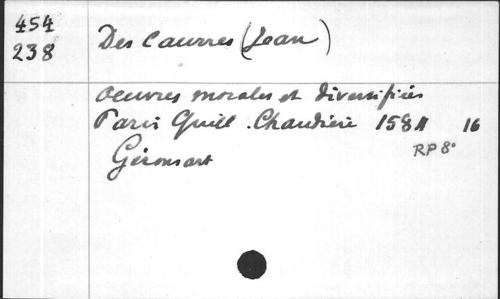 454
238
Des Caurres (Jean)
Oeuvres morales et diversifiées
Paris Guill. Chaudière 1584 16
RP 8°